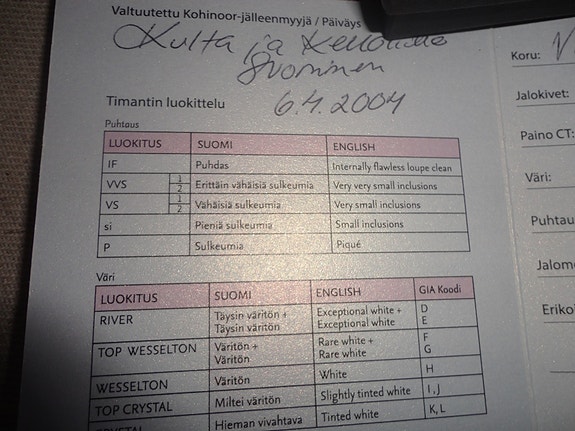 Valtuutettu Kohinoor-jälleenmyyjä / Päiväys
Kulta ja
Suominen
6.4.2004
Timantin luokittelu
Puhtaus
LUOKITUS SUOMI ENGLISH
IF Puhdas Internally flawless loupe clean
VVS 1 2 Erittäin vähäisiä sulkeumia Very very small inclusions
VS 1 2 Vähäisiä sulkeumia Very small inclusions
si Pieniä sulkeumia Small inclusions
P Sulkeumia Piqué
Väri
LUOKITUS SUOMI ENGLISH GIA Koodi
RIVER Täysin väritön + Exceptional white + D
Täysin väritön Exceptional white E
TOP WESSELTON Väritön + Rare white + F
Väritön Rare white G
WESSELTON Väritön White H
TOP CRYSTAL Miltei väritön Slightly tinted white I, J
Hieman vivahtava Tinted white K, L
Koru:
Jalokivet:
Paino CT:
Väri:
Puhtau
Jalome
Eriko